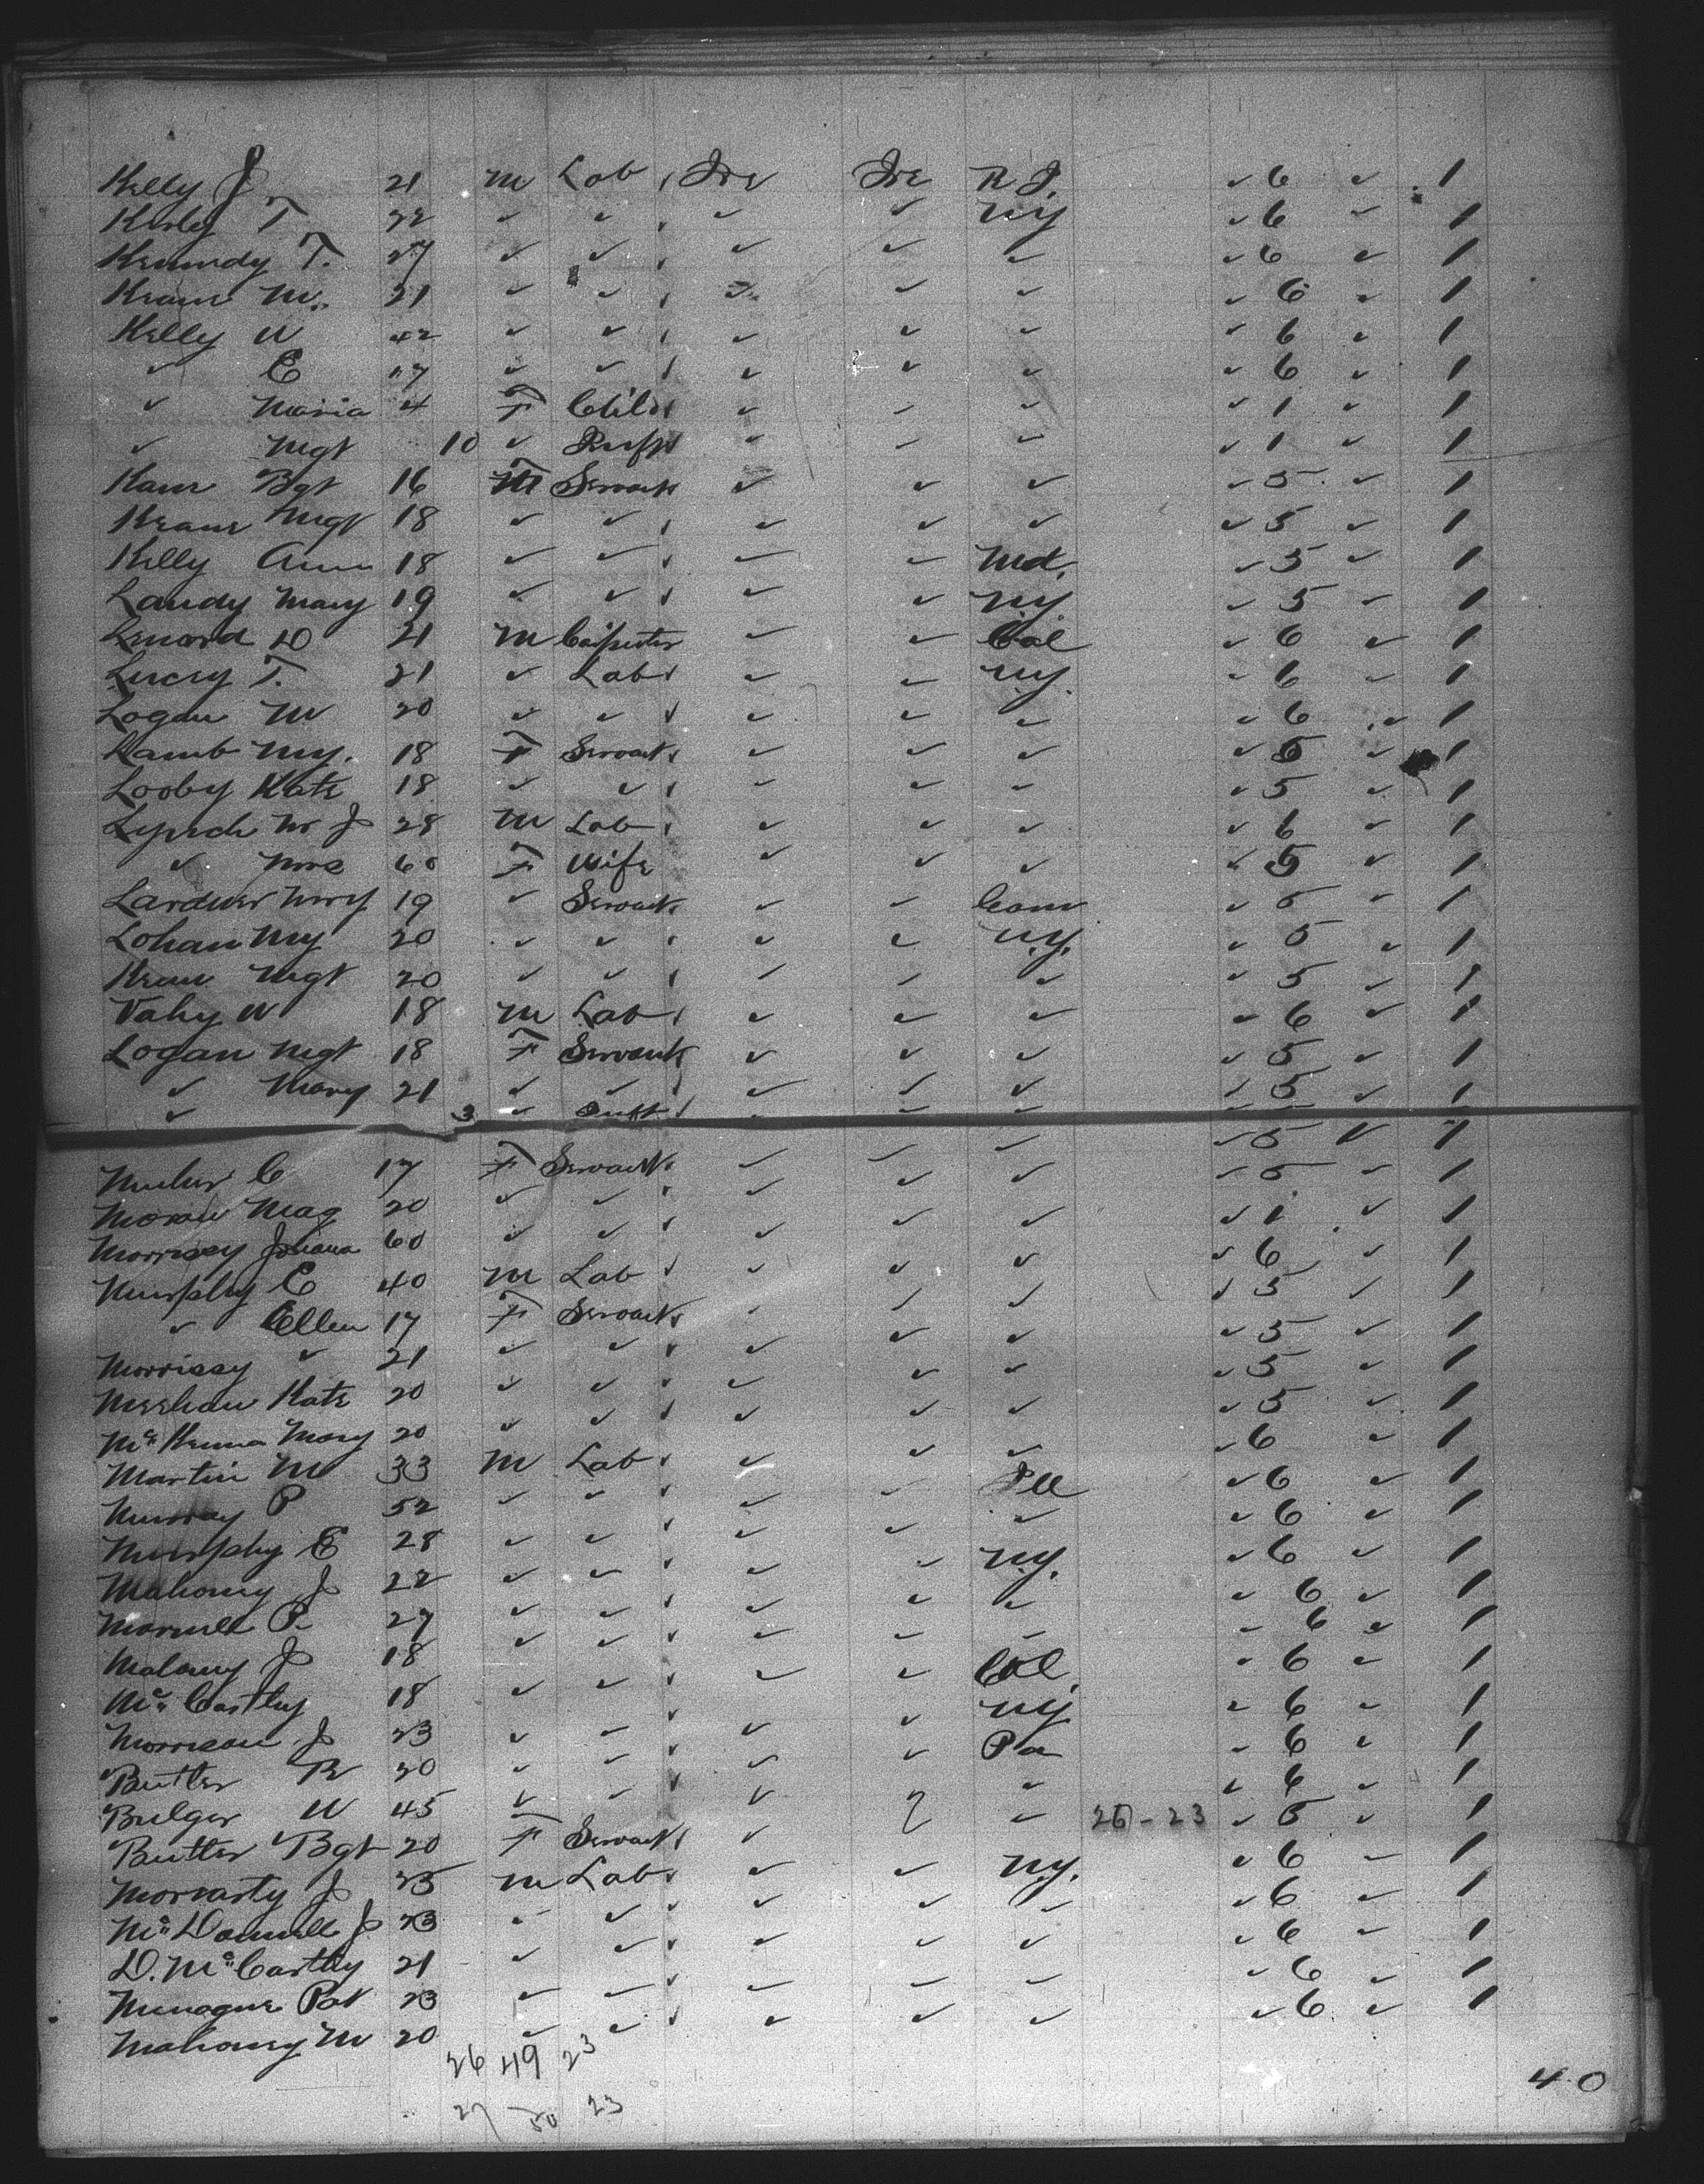 Kelly J 21 m Lab Ire Ire R I. ✓ 6 ✓ 1
Kirby T 22 ✓ ✓ ✓ ✓ NY ✓ 6 ✓ 1
Kennedy T. 27 ✓ ✓ ✓ ✓ ✓ ✓ 6 ✓ 1
Keane M. 21 ✓ ✓ ✓ ✓ ✓ ✓ 6 ✓ 1
Kelly W 42 ✓ ✓ ✓ ✓ ✓ ✓ 6 ✓ 1
✓ E 17 ✓ ✓ ✓ ✓ ✓ ✓ 6 ✓ 1
✓ Maria 4 F Child ✓ ✓ ✓ ✓ 1 ✓ 1
✓ Mgt 10 ✓ ✓ ✓ ✓ ✓ 1 ✓ 1
Kane Bgt 16 F Servant ✓ ✓ ✓ ✓ 5 ✓ 1
Keane Mgt 18 ✓ ✓ ✓ ✓ ✓ ✓ 5 ✓ 1
Kelly Ann 18 ✓ ✓ ✓ ✓ Md. ✓ 5 ✓ 1
Landy Mary 19 ✓ ✓ ✓ ✓ NY ✓ 5 ✓ 1
Lenord D 21 m Carpenter ✓ ✓ Cal ✓ 6 ✓ 1
Lucey T. 21 ✓ Lab ✓ ✓ NY. ✓ 6 ✓ 1
Logan M 20 ✓ ✓ ✓ ✓ ✓ ✓ 6 ✓ 1
Lamb My. 18 F Servant ✓ ✓ ✓ ✓ 5 ✓ 1
Looby Kate 18 ✓ ✓ ✓ ✓ ✓ ✓ 5 ✓ 1
Lynch J 28 m Lab ✓ ✓ ✓ ✓ 6 ✓ 1
✓ Mrs 60 F Wife ✓ ✓ ✓ ✓ 5 ✓ 1
Lardner Mry 19 ✓ Servant ✓ ✓ Conn ✓ 5 ✓ 1
Lohan My 20 ✓ ✓ ✓ ✓ N.Y. ✓ 5 ✓ 1
Mgt 20 ✓ ✓ ✓ ✓ ✓ ✓ 5 ✓ 1
Vahy W 18 m Lab ✓ ✓ ✓ ✓ 6 ✓ 1
Logan Mgt 18 F Servant ✓ ✓ ✓ ✓ 5 ✓ 1
✓ Mary 21 ✓ ✓ ✓ ✓ ✓ ✓ 5 ✓ 1
✓ 3 ✓ Inft ✓ ✓ ✓
C 17 F Servant ✓ ✓ ✓ ✓ 5 ✓ 1
Moran Mag 20 ✓ ✓ ✓ ✓ ✓ ✓ 5 ✓ 1
Morrisey Johana 60 ✓ ✓ ✓ ✓ ✓ ✓ 1 ✓ 1
Murphy E 40 m Lab ✓ ✓ ✓ ✓ 6 ✓ 1
✓ Ellen 17 F Servant ✓ ✓ ✓ ✓ 5 ✓ 1
Morrissy ✓ 21 ✓ ✓ ✓ ✓ ✓ ✓ 5 ✓ 1
Meehan Kate 20 ✓ ✓ ✓ ✓ ✓ ✓ 5 ✓ 1
McKenna Mary 20 ✓ ✓ ✓ ✓ ✓ ✓ 5 ✓ 1
Martin M 33 m Lab ✓ ✓ ✓ ✓ 6 ✓ 1
Murray P 52 ✓ ✓ ✓ ✓ Ill ✓ 6 ✓ 1
Murphy E 28 ✓ ✓ ✓ ✓ ✓ ✓ 6 ✓ 1
Mahoney J 22 ✓ ✓ ✓ ✓ N.Y. ✓ 6 ✓ 1
P. 27 ✓ ✓ ✓ ✓ ✓ ✓ 6 ✓ 1
Malony J 18 ✓ ✓ ✓ ✓ ✓ ✓ 6 ✓ 1
McCarthy 18 ✓ ✓ ✓ ✓ Cal. ✓ 6 ✓ 1
Morrison J 23 ✓ ✓ ✓ ✓ NY ✓ 6 ✓ 1
Butler 20 ✓ ✓ ✓ ✓ Pa ✓ 6 ✓ 1
Bulger W 45 ✓ ✓ ✓ ✓ ✓ ✓ 6 ✓ 1
Butler Bgt 20 F Servant ✓ ✓ 26-23 ✓ 5 ✓ 1
Moriarty J 25 m Lab ✓ ✓ N.Y. ✓ 6 ✓ 1
McDonnell J 23 ✓ ✓ ✓ ✓ ✓ ✓ 6 ✓ 1
D. McCarthy 21 ✓ ✓ ✓ ✓ ✓ ✓ 6 ✓ 1
Minogue Pat 23 ✓ ✓ ✓ ✓ ✓ ✓ 6 ✓ 1
Mahoney M 20 ✓ ✓ ✓ ✓ ✓ ✓ 6 ✓ 1
26 49 23
27 50 23
40